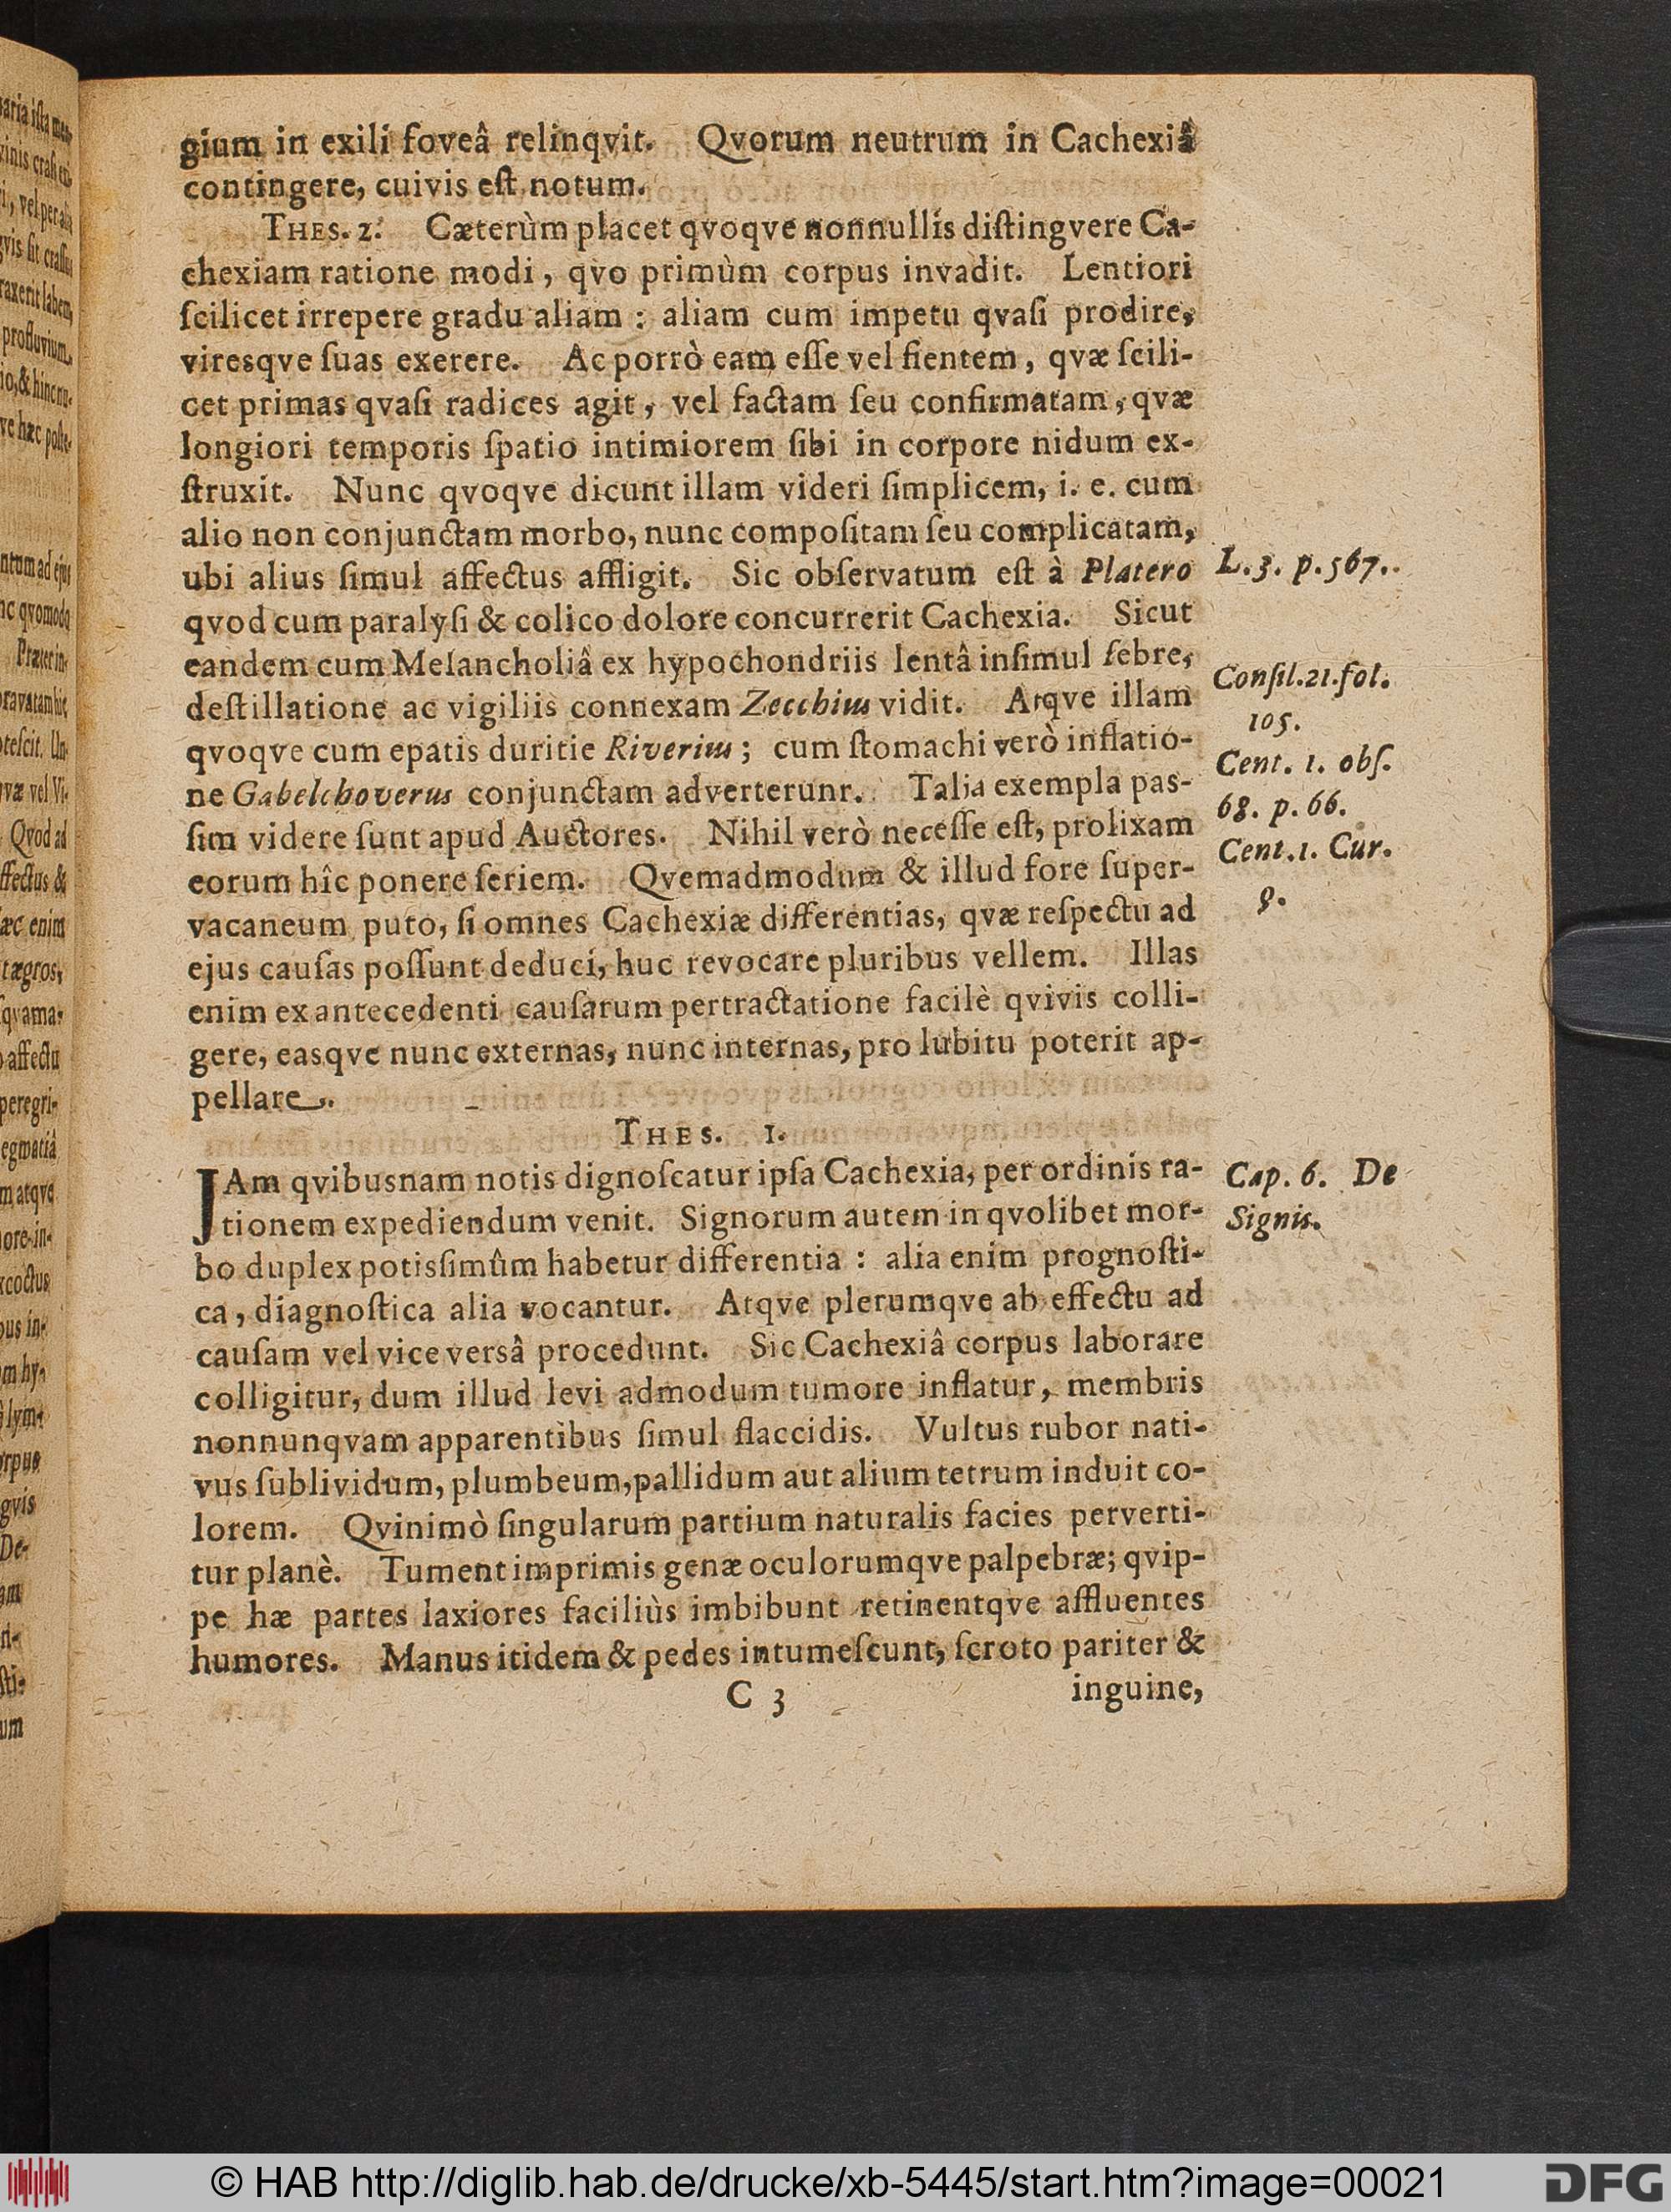 gium in exili foveâ relinqvit. Qvorum neutrum in Cachexiâ
contingere, cuivis eſt notum.
THES. 2. Cæterùm placet qvoqve nonnullis diſtingvere Ca-
chexiam ratione modi, qvo primùm corpus invadit. Lentiori
ſcilicet irrepere gradu aliam : aliam cum impetu qvaſi prodire,
viresqve ſuas exerere. Ac porrò eam eſſe vel fientem, qvæ ſcili-
cet primas qvaſi radices agit, vel factam ſeu confirmatam, qvæ
longiori temporis ſpatio intimiorem ſibi in corpore nidum ex-
ſtruxit. Nunc qvoqve dicunt illam videri ſimplicem, i. e. cum
alio non conjunctam morbo, nunc compoſitam ſeu complicatam,
ubi alius ſimul affectus affligit. Sic obſervatum eſt à Platero
L. 3. p. 567.
qvod cum paralyſi & colico dolore concurrerit Cachexia. Sicut
eandem cum Melancholiâ ex hypochondriis lentâ inſimul febre,
Conſil. 21. fol.
deſtillatione ac vigiliis connexam Zecchius vidit. Atqve illam
105.
qvoqve cum epatis duritie Riverius; cum ſtomachi verò inflatio-
Cent. 1. obſ.
ne Gabelchoverus conjunctam adverterunr. Talia exempla pas-
68. p. 66.
ſim videre ſunt apud Auctores. Nihil verò neceſſe eſt, prolixam
Cent. 1. Cur.
eorum hîc ponere ſeriem. Qvemadmodum & illud fore ſuper-
9.
vacaneum puto, ſi omnes Cachexiæ differentias, qvæ reſpectu ad
ejus cauſas poſſunt deduci, huc revocare pluribus vellem. Illas
enim ex antecedenti cauſarum pertractatione facilè qvivis colli-
gere, easqve nunc externas, nunc internas, pro lubitu poterit ap-
pellare.
THES. 1.
JAm qvibusnam notis dignoſcatur ipſa Cachexia, per ordinis ra-
Cap. 6. De
tionem expediendum venit. Signorum autem in qvolibet mor-
Signis.
bo duplex potisſimûm habetur differentia : alia enim prognoſti-
ca, diagnoſtica alia vocantur. Atqve plerumqve ab effectu ad
cauſam vel vice versâ procedunt. Sic Cachexiâ corpus laborare
colligitur, dum illud levi admodum tumore inflatur, membris
nonnunqvam apparentibus ſimul flaccidis. Vultus rubor nati-
vus ſublividum, plumbeum, pallidum aut alium tetrum induit co-
lorem. Qvinimò ſingularum partium naturalis facies perverti-
tur planè. Tument imprimis genæ oculorumqve palpebræ; qvip-
pe hæ partes laxiores faciliùs imbibunt retinentqve affluentes
humores. Manus itidem & pedes intumeſcunt, ſcroto pariter &
C 3
inguine,
© HAB http://diglib.hab.de/drucke/xb-5445/start.htm?image=00021
DFG